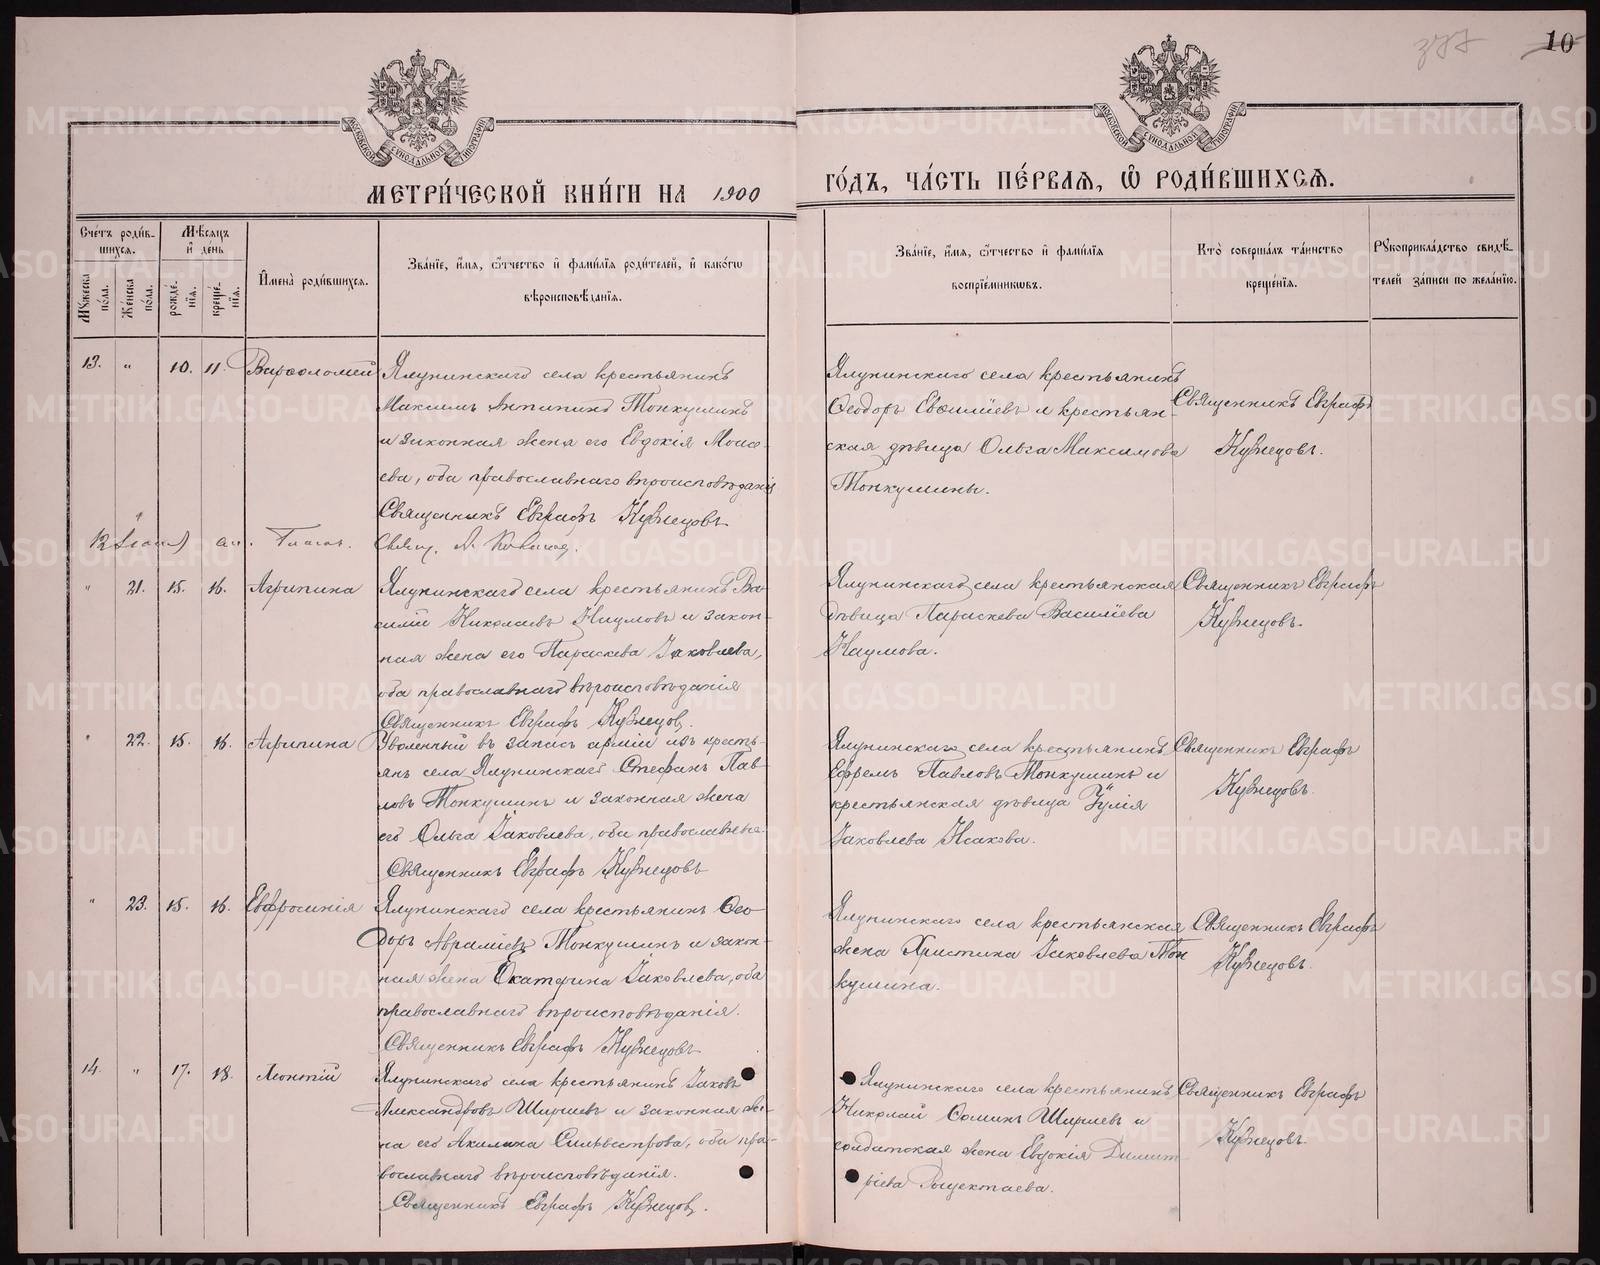 377
10
МОСКОВСКОЙ СѴНОДАЛЬНОЙ ТИПОГРАФІИ
МОСКОВСКОЙ СѴНОДАЛЬНОЙ ТИПОГРАФІИ
МЕТРИ́ЧЕСКОЙ КНИ́ГИ НА 1900
ГО́ДЪ, ЧА́СТЬ ПЕ́РВАЯ, Ѡ҆ РОДИ́ВШИХСЯ.
Сче́тъ роди́в-
шихся.
Мꙋжеска по́ла.
Же́нска по́ла.
Мѣ́сяцъ
и҆ де́нь
рожде́нїя.
креще́нїя.
И҆мена̀ роди́вшихся.
Зва́нїе, и҆́мя, ѻ҆́тчество и҆ фами́лїя роди́телей, и҆ како́гѡ
вѣроисповѣ́данїя.
Зва́нїе, и҆́мя, ѻ҆́тчество и҆ фами́лїя
воспрїе́мникѡвъ.
Кто̀ соверша́лъ та́инство
креще́нїя.
Рꙋкоприкла́дство свидѣ́-
телей за́писи по жела́нїю.
13. " 10. 11. Варѳоломей
Ялунинскаго села крестьянинъ
Максимъ Антипинъ Топкушинъ
и законная жена его Евдокія Моисе-
ева, оба православнаго вѣроисповѣданія
Священникъ Евграфъ Кузнецовъ
Ялунинскаго села крестьянинъ
Ѳеодоръ Евсиліевъ и крестьян-
ская дѣвица Ольга Максимова
Топкушины.
Священникъ Евграфъ
Кузнецовъ.
" 21. 15. 16. Агрипина
Ялунинскаго села крестьянинъ Ва-
силій Николаевъ Наумовъ и закон-
ная жена его Параскева Іаковлева,
оба православнаго вѣроисповѣданія
Священникъ Евграфъ Кузнецовъ.
Ялунинскаго села крестьянская
дѣвица Параскева Василіева
Наумова.
Священникъ Евграфъ
Кузнецовъ.
" 22. 15. 16. Агрипина
Уволенный въ запасъ арміи изъ кресть-
янъ села Ялунинскаго Стефанъ Пав-
ловъ Топкушинъ и законная жена
его Ольга Іаковлева, оба православные.
Священникъ Евграфъ Кузнецовъ
Ялунинскаго села крестьянинъ
Ефремъ Павловъ Топкушинъ и
крестьянская дѣвица Іулія
Іаковлева Исакова.
Священникъ Евграфъ
Кузнецовъ.
" 23. 15. 16. Евфросинія
Ялунинскаго села крестьянинъ Ѳео-
доръ Авраміевъ Топкушинъ и закон-
ная жена Екатерина Іаковлева, оба
православнаго вѣроисповѣданія.
Священникъ Евграфъ Кузнецовъ
Ялунинскаго села крестьянская
жена Христина Іаковлева Топ
кушина.
Священникъ Евграфъ
Кузнецовъ.
14. " 17. 18. Леонтій
Ялунинскаго села крестьянинъ Іаковъ
Александровъ Ширшевъ и законная же-
на его Акилина Сильвестрова, оба пра-
вославнаго вѣроисповѣданія.
Священникъ Евграфъ Кузнецовъ.
Ялунинскаго села крестьянинъ
Николай Ѳоминъ Ширшевъ и
солдатская жена Евдокія Димит
ріева
Священникъ Евграфъ
Кузнецовъ.
METRIKI.GASO-URAL.RU